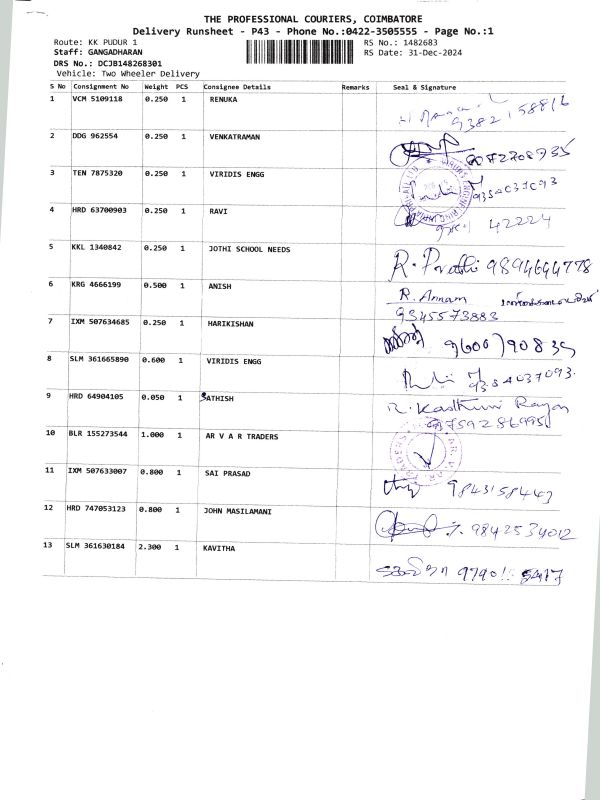 THE PROFESSIONAL COURIERS, COIMBATORE
Delivery Runsheet - P43 - Phone No.:0422-3505555 - Page No.:1
Route: KK PUDUR 1 RS No.: 1482683
Staff: GANGADHARAN RS Date: 31-Dec-2024
DRS No.: DCJB148268301
Vehicle: Two Wheeler Delivery
S No Consignment No Weight PCS Consignee Details Remarks Seal & Signature
1 VCM 5109118 0.250 1 RENUKA
9382158816
2 DDG 962554 0.250 1 VENKATRAMAN
9072208935
3 TEN 7875320 0.250 1 VIRIDIS ENGG
9384037093
4 HRD 63700903 0.250 1 RAVI
42224
5 KKL 1340842 0.250 1 JOTHI SCHOOL NEEDS
R. Prathi 9894644778
6 KRG 4666199 0.500 1 ANISH
R. Annam
9345573883
7 IXM 507634685 0.250 1 HARIKISHAN
9600790835
8 SLM 361665890 0.600 1 VIRIDIS ENGG
9384037093
9 HRD 64904105 0.050 1 SATHISH
R. Kasthuri Rajan
9759286995
10 BLR 155273544 1.000 1 AR V A R TRADERS
11 IXM 507633007 0.800 1 SAI PRASAD
9843158443
12 HRD 747053123 0.800 1 JOHN MASILAMANI
9842534012
13 SLM 361630184 2.300 1 KAVITHA
97901 5417